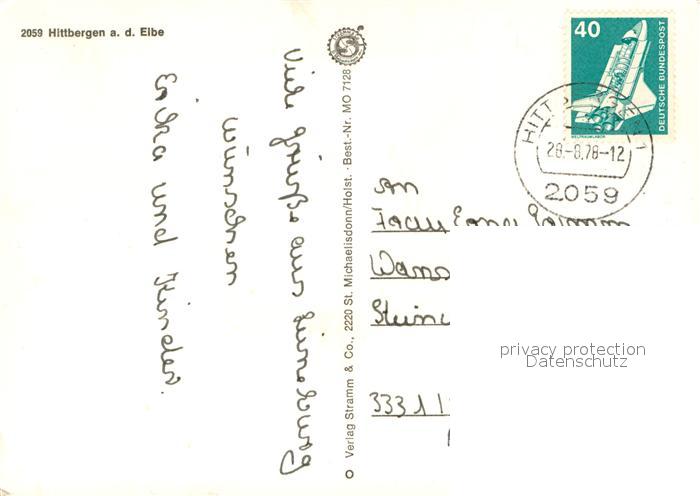 2059 Hittbergen a. d. Elbe
Viele Grüße aus Lüneburg
wünschen
Erika und Kinder.
Verlag Stramm & Co., 2220 St. Michaelisdonn/Holst. · Best.-Nr. MO 7128
40
DEUTSCHE BUNDESPOST
WELTRAUMLABOR
28.-8.78-12
2059
An
Frau
3331
privacy protection
Datenschutz